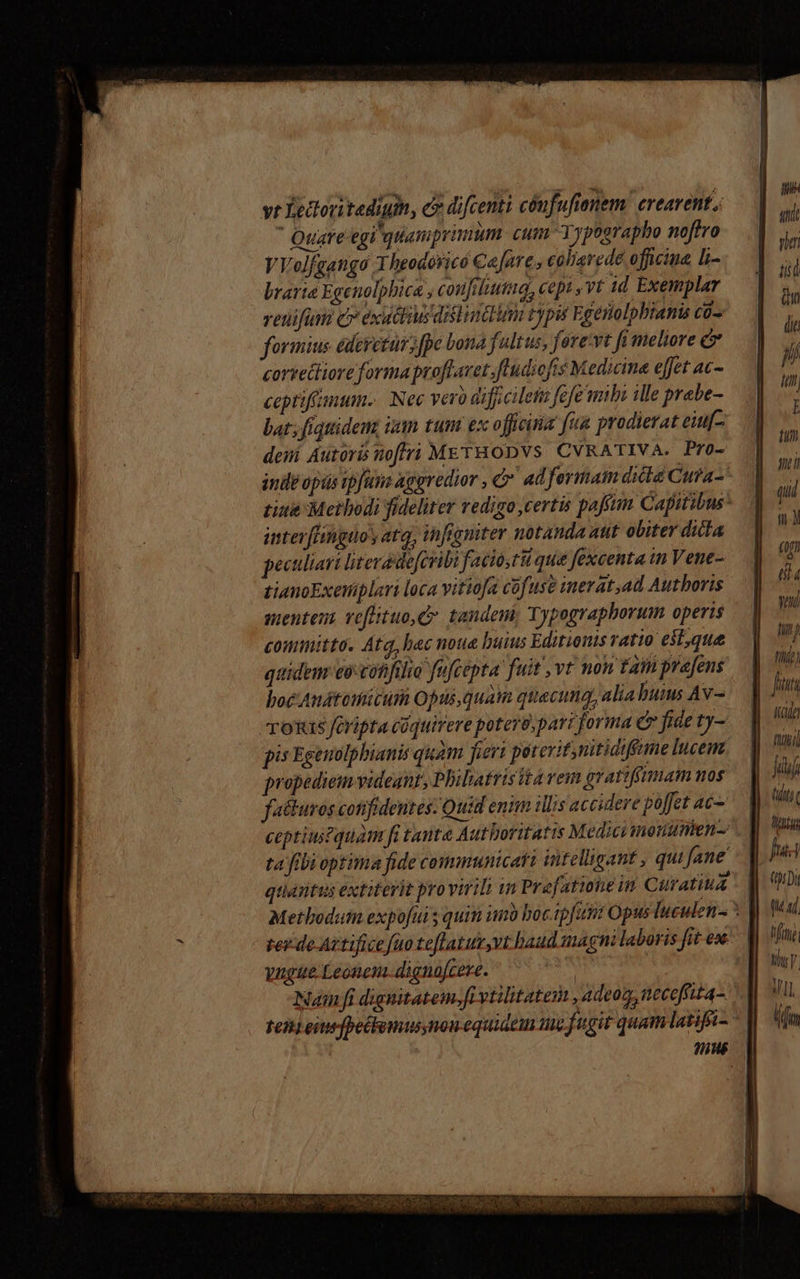 vt Lectori tædium, & discenti cōfusionem crearent.
Quare egi quamprimùm cum Typographo nostro
VVolfgango Theodorico Cæsare, cohærede officinæ li-
brariæ Egenolphicæ, consiliumq́, cepi, vt id Exemplar
reuisum & exactius distinctum typis Egenolphianis cō-
formius ederetur, spe bona fultus, fore vt si meliore &
correctiore forma proflaret, studiosis Medicinæ esset ac-
ceptissimum. Nec verò difficilem sese mihi ille præbe-
bat, siquidem iam tum ex officina sua prodierat eius-
dem Autoris nostri METHODVS CVRATIVA. Pro-
indè opus ipsum aggredior, & ad formam dictæ Cura-
tiuæ Methodi fideliter redigo, certis passim Capitibus
interstinguo, atq́, insigniter notanda aut obiter dicta
peculiari litera describi facio, tū quæ sexcenta in Vene-
tiano Exemplari loca vitiosa cōfusè inerāt, ad Authoris
mentem restituo, & tandem Typographorum operis
committo. Atq́, hæc noua huius Editionis ratio est, quæ
quidem eo consilio suscepta fuit, vt non tàm præsens
hoc Anatomicum Opus, quàm quæcunq́, alia huius Av-
TORIS scripta cōquirere potero, pari forma & fide ty-
pis Egenolphianis quàm fieri poterit, nitidissimè lucem
propediem videant, Philiatris ita rem gratissimam nos
facturos confidentes. Quid enim illis accidere posset ac-
ceptius? quàm si tantæ Authoritatis Medici monumen-
ta sibi optima fide communicari intelligant, qui sane
quantus extiterit pro virili in Præfatione in Curatiuā
Methodum exposui; quin imò hoc ipsum Opus luculen-
ter de Artifice suo testatur, vt haud magni laboris sit ex
vngue Leonem dignoscere.
Nam si dignitatem, si vtilitatem, adeoq́, necessita-
tem eius spectemus, non equidem me fugit quam latissi-
mus